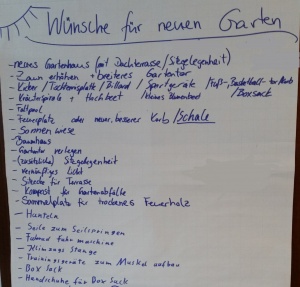 Wünsche für neuen Garten
- neues Gartenhaus (mit Dachterrasse / Sitzgelegenheit)
- Zaun erhöhen + breiteres Gartentor
- Kicker / Tischtennisplatte / Billard / Sportgeräte / Fuß- Basketball- tor/Korb
- Kräuterspirale + Hochbeet / kleines Blumenbeet / Boxsack
- Fußpool
- Feuerplatz oder neuer, besserer Korb / Schale
- Sonnenwiese
- Baumhaus
- Gartentor verlegen
- (zusätzliche) Sitzgelegenheit
- vernünftiges Licht
- Sitzecke für Terrasse
- Kompost für Gartenabfälle
- Sammelplatz für trockenes Feuerholz
- Hanteln
- Seile zum Seilspringen
- Fahrrad fahr maschine
- Klimzugs Stange
- Trainingsgeräte zum Muskel aufbau
- Box Sack
- Handschuhe für Box Sack